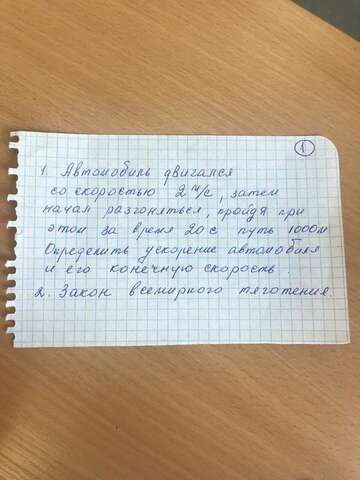 1
1. Автомобиль двигался
со скоростью 2 м/с, затем
начал разгоняться, пройдя при
этом за время 20 с путь 1000м
Определить ускорение автомобиля
и его конечную скорость.
2. Закон всемирного тяготения.